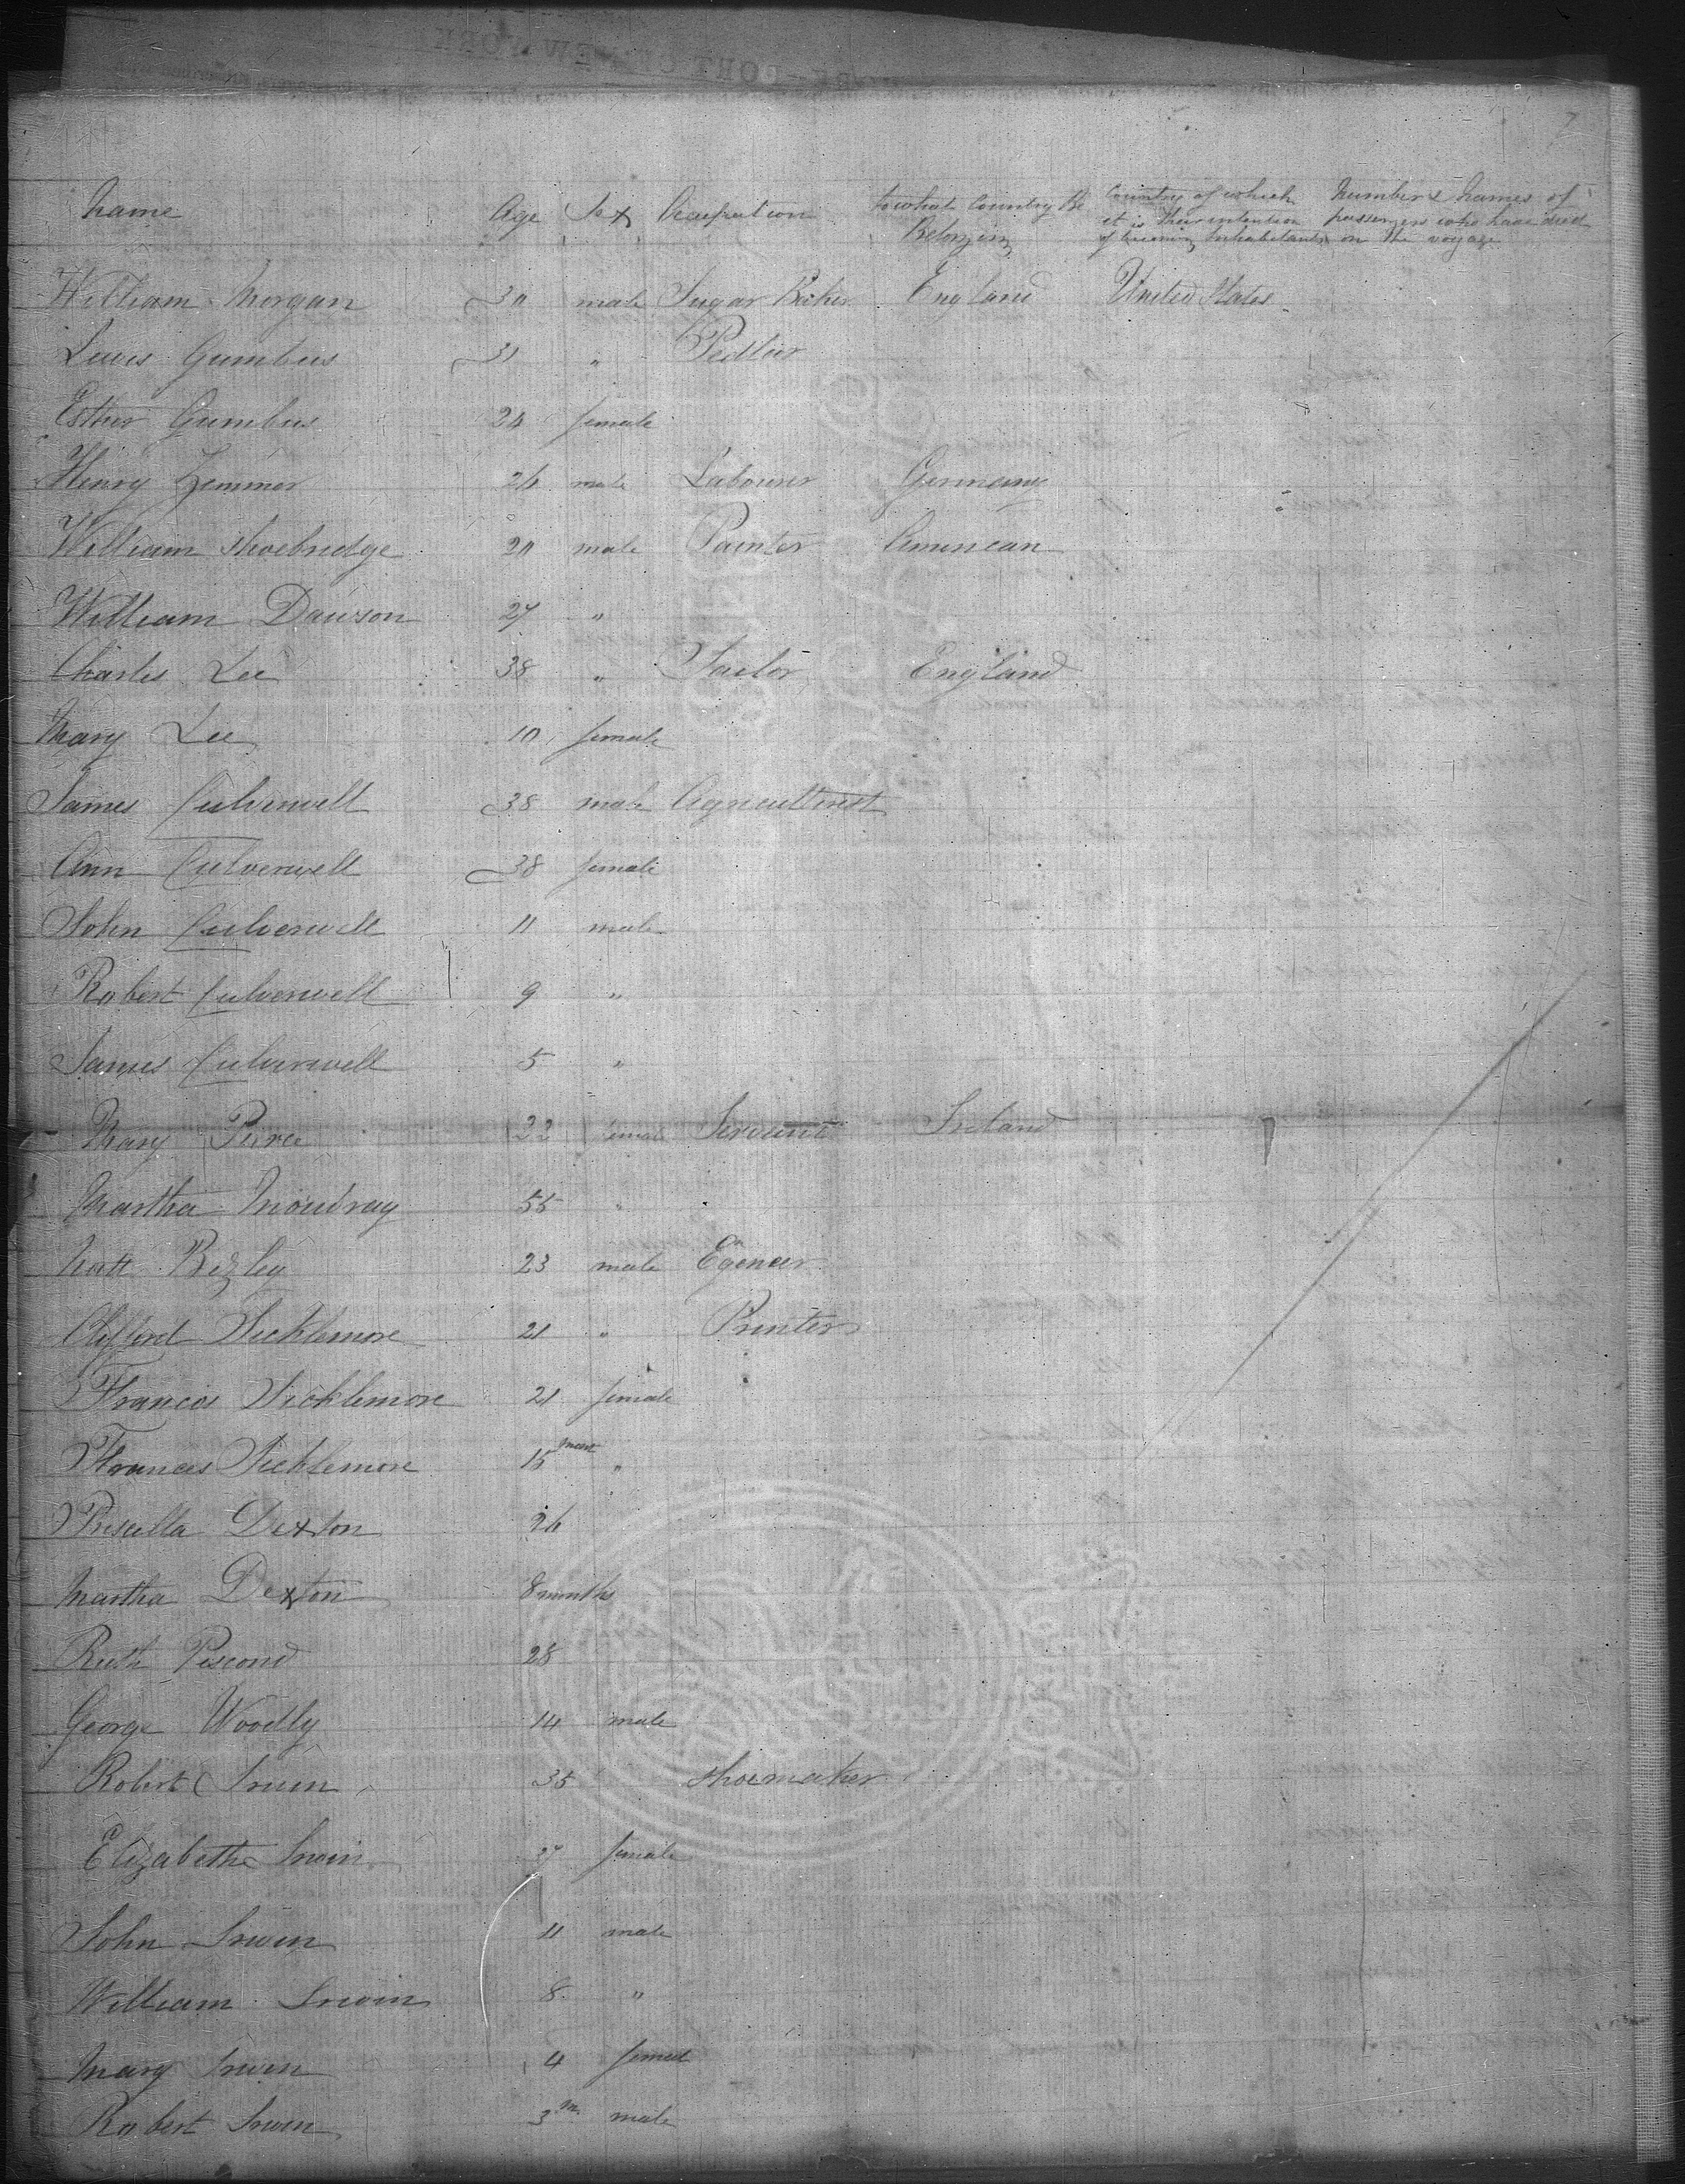 PORT OF NEW YORK
7
Name Age Sex Occupation to what Country the Belonging Country of which it is their intention of becoming Inhabitants Number & Names of passengers who have died on the voyage
William Morgan 30 male Sugar Baker England United States
Lewis Gumbus 31 " Pedlar
Esther Gumbus 24 female
Henry Zemmer 26 male Labourer Germany
William Shoebridge 20 male Painter American
William Dawson 27 "
Charles Lee 38 " Tailor England
Mary Lee 10 female
James Culverwell 38 male Agricultirest
Ann Culverwell 38 female
John Culverwell 11 male
Robert Culverwell 9 "
James Culverwell 5 "
Mary Pierce 22 female Servant Ireland
Martha Moudray 55 "
Matt Bezley 23 male Egeneer
Clifford Sicklemore 21 " Printer
Francis Sicklemore 21 female
Frances Sicklemore 15 "
Priscilla Dexton 26
Martha Dexton 8 months
Ruth Pescond 28
George Woodly 14 male
Robert Irwin 35 Shoemaker
Elizabeth Irwin 27 female
John Irwin 11 male
William Irwin 8 "
Mary Irwin 4 femal
Robert Irwin 3 m male